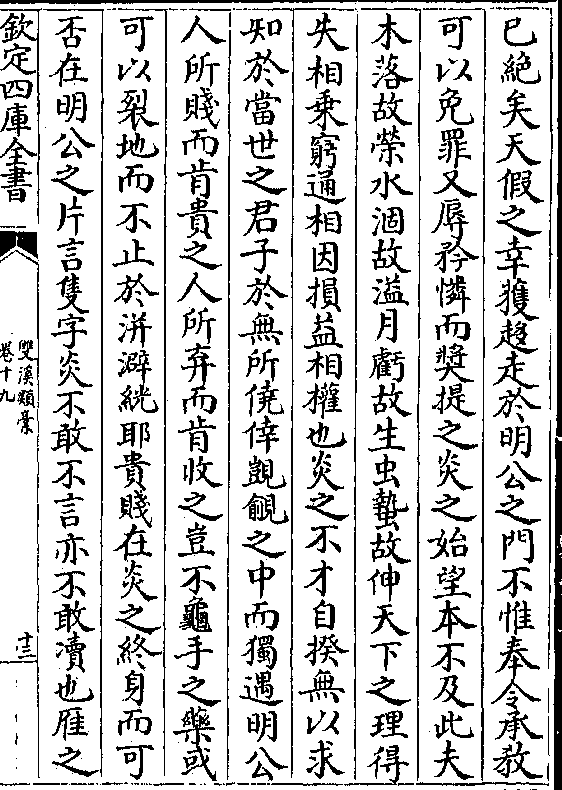 已絶矣天假之幸獲趍走於明公之門不惟奉令承教
可以免罪又辱矜憐而奬提之炎之始望本不及此夫
木落故榮水涸故溢月虧故生虫蟄故伸天下之理得
失相乗窮通相因損益相權也炎之不才自揆無以求
知於當世之君子於無所僥倖覬覦之中而獨遇明公
人所賤而肯貴之人所弃而肯收之豈不龜手之藥或
可以裂地而不止於洴澼絖耶貴賤在炎之終身而可
否在明公之片言隻字炎不敢不言亦不敢瀆也雁之
欽定四庫全書
雙溪類稾
卷十九
十三